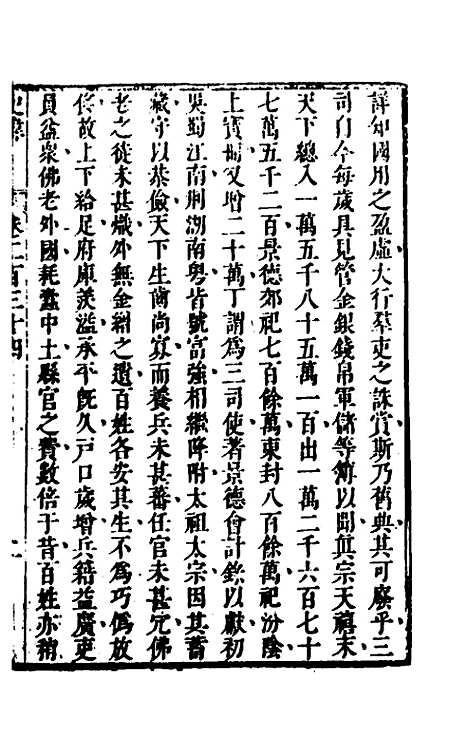 詳知國用之盈虛大行羣吏之誅賞斯乃舊典其可廢乎三
司自今每歲具見管金銀錢帛軍儲等簿以聞眞宗天禧末
天下總入一萬五千八十五萬一百出一萬二千六百七十
七萬五千二百景德郊祀七百餘萬東封八百餘萬祀汾陰
上寶冊又增二十萬丁謂爲三司使著景德會計錄以獻初
吳蜀江南荆湖南粵皆號富強相繼降附太祖太宗因其蓄
藏守以恭儉天下生齒尚寡而養兵未甚蕃任官未甚冗佛
老之徒未甚熾外無金繒之遺百姓各安其生不爲巧僞放
侈故上下給足府庫羨溢承平旣久戸口歲增兵籍益廣吏
員益衆佛老外國耗蠹中土縣官之費數倍于昔百姓亦稍
史纂
卷二百三十四